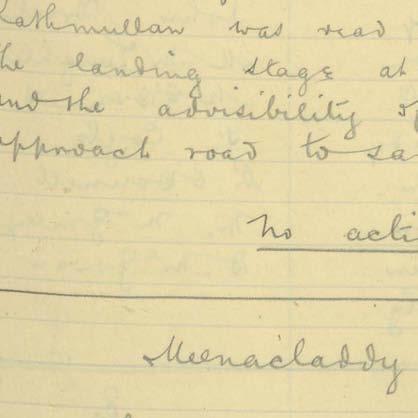 Rathmullan was read
the landing stage at
and the advisibility of
approach road to sa
No acti
Meenacladdy